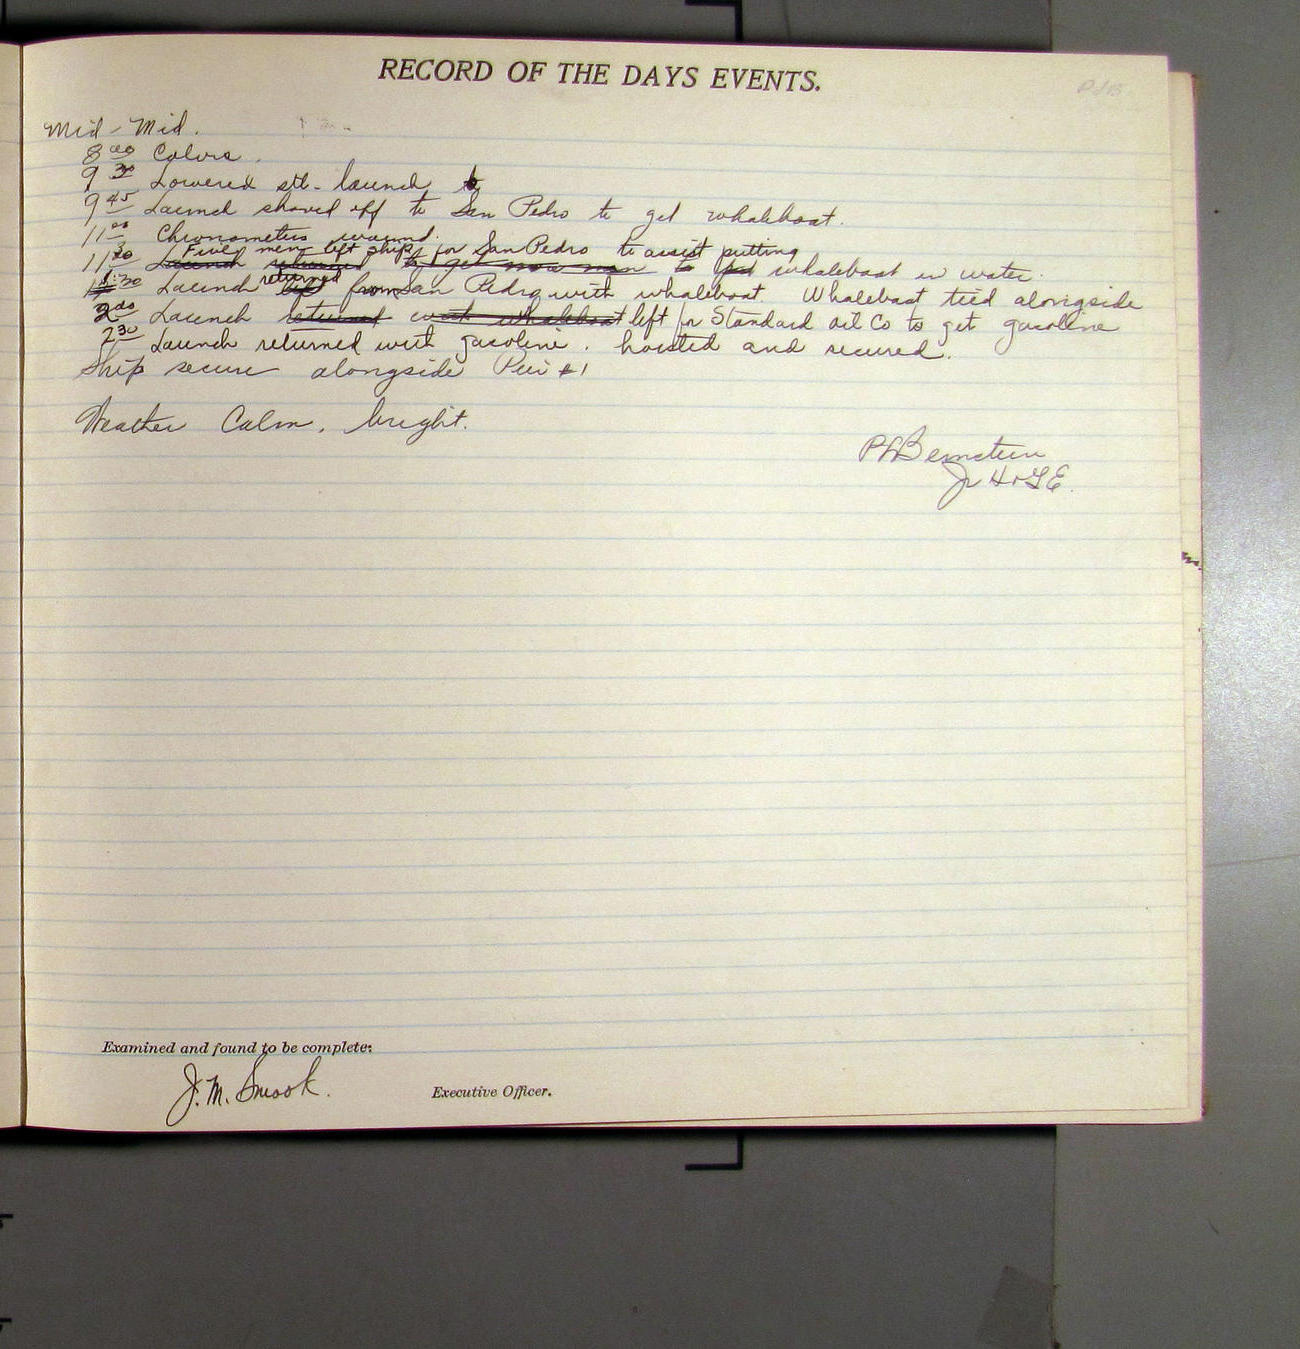 RECORD OF THE DAYS EVENTS.
Mid - Mid.
8 00 Colors.
9 30 Lowered stb. launch
9 45 Launch shoved off to San Pedro to get whaleboat.
11 00 Chronometers wound.
Five men left ship for San Pedro to assist putting
11 30 Launch returned to get more men to put whaleboat in water.
returned
1:30 Launch left from San Pedro with whaleboat. Whaleboat tied alongside
2 00 Launch returned with whaleboat left for Standard Oil Co to get gasoline
2 30 Launch returned with gasoline. hoisted and secured.
Ship secure alongside Pier #1
Weather Calm, bright.
P Bernstein
Jr H & G E.
Examined and found to be complete:
J. M. Smook. Executive Officer.